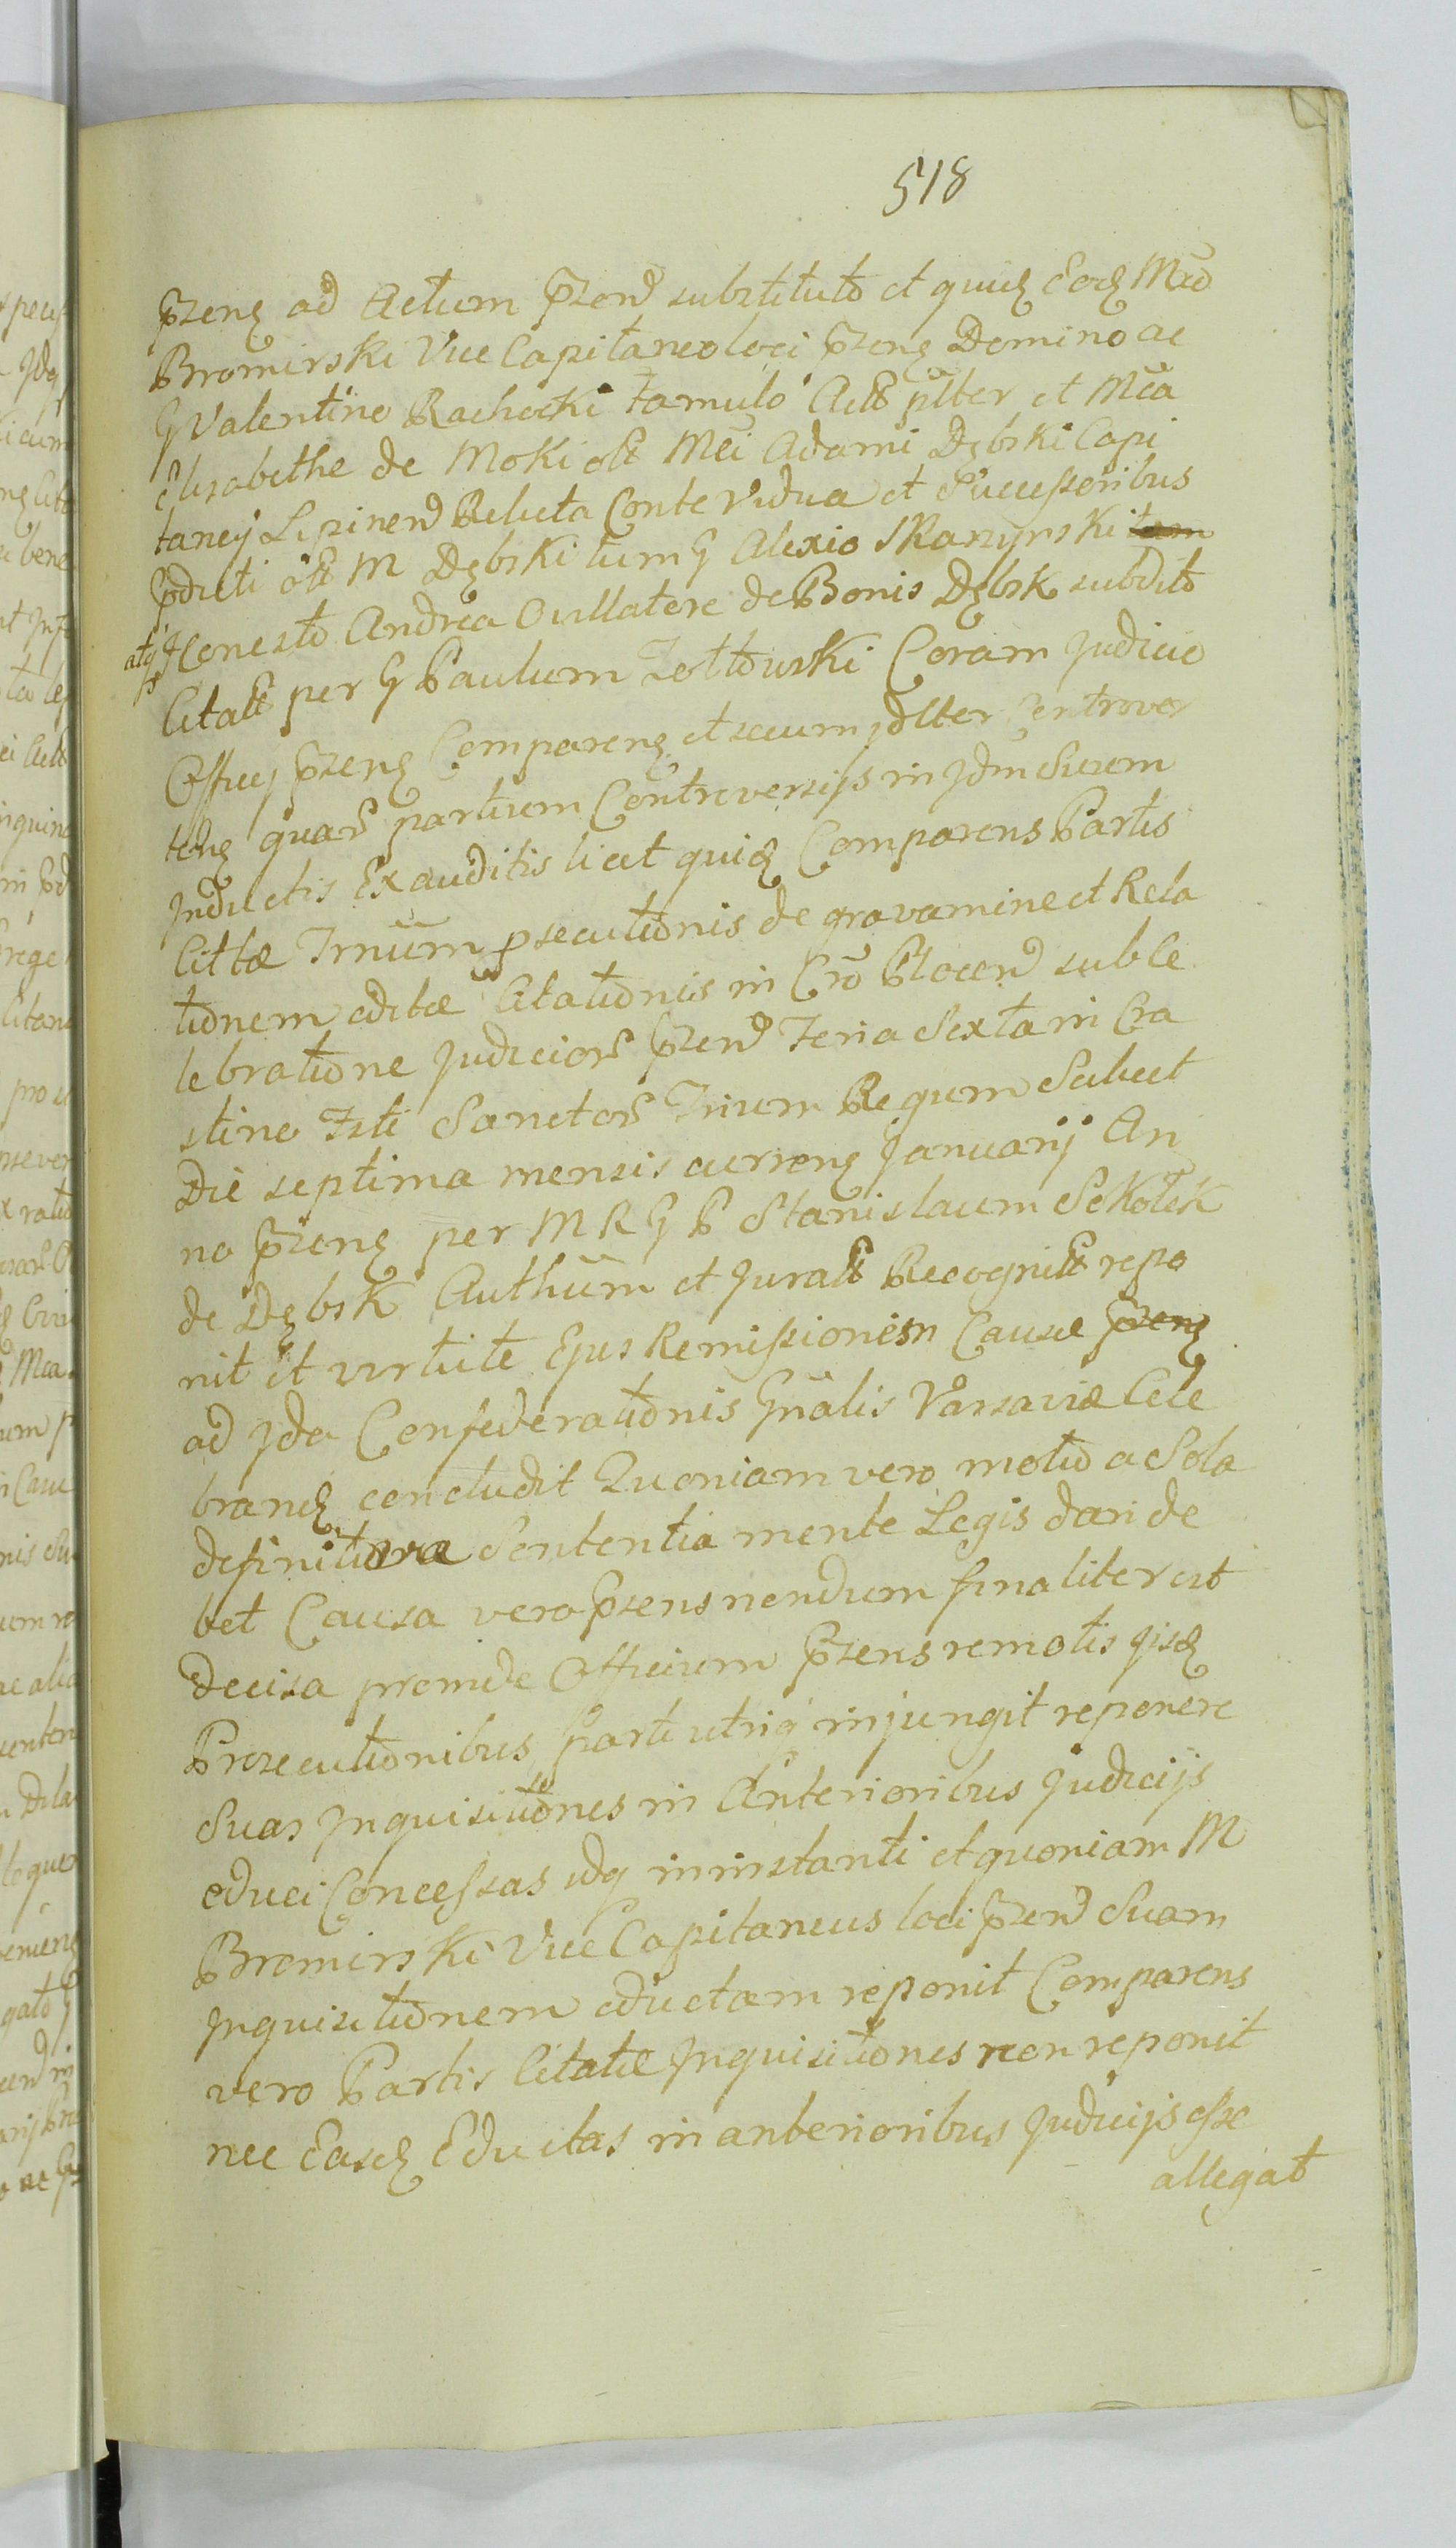 518
przenz ad Actum przend substituto et quiuz Eodz Mco
Bromirski ViceCapitaneo loci przenz Domino ac
G Valentino Rachocki famulo Actt plter et Mca
Elisabethe de Moki olt Mci Adami Dębski Capi
taney Lipinend Relicta Conte Vidua et Successoribus
pdicti olt M Dębski tum G Alexio Skarzynski tam
atq Honesto Andrea Oullatore de Bonis Dębsk subdito
Citatt per G Paulum Zołtowski Coram Judicio
Officij przenz Comparenz et secum jdltter Controver
tenz quar partium Controversijs in Jdm Suum
Inductis Exauditis licet quidz Comparens Partis
Cittae Trnum psecutionis de gravamine et Rela
tionem editae Citationis in Cro Plocend sub Ce
lebratione Judicior przend Feria Sexta in Cra
stino Fsti Sanctor Trium Regum Scilicet
Die septima mensis currenz Januarij An
no przenz per M R G P Stanislaum Sekołek
de Dębsk Authum et Juratt Recognitt repo
nit et virtute Ejus Remissionem Causae przenz
ad Jda Confederationis Gnalis Varsaviae Cele
brandz concludit Quoniam vero motio a Sola
definitiva Sententia mente Legis dari de
bet Causa vero Przens nondum finaliter est
decisa proinde Officium Przens remotis jisdz
Prosecutionibus Parti utriq injungit reponere
Suas Inquisitiones in Anterioribus Judicijs
educi Concessas idq in instanti et quoniam M
Bromirski ViceCapitaneus loci przend Suam
Inquisitionem eductam reponit Comparens
vero Partis Citatae Inquisitiones non reponit
nec Easdz Eductas in anterioribus Judicijs esse
allegat